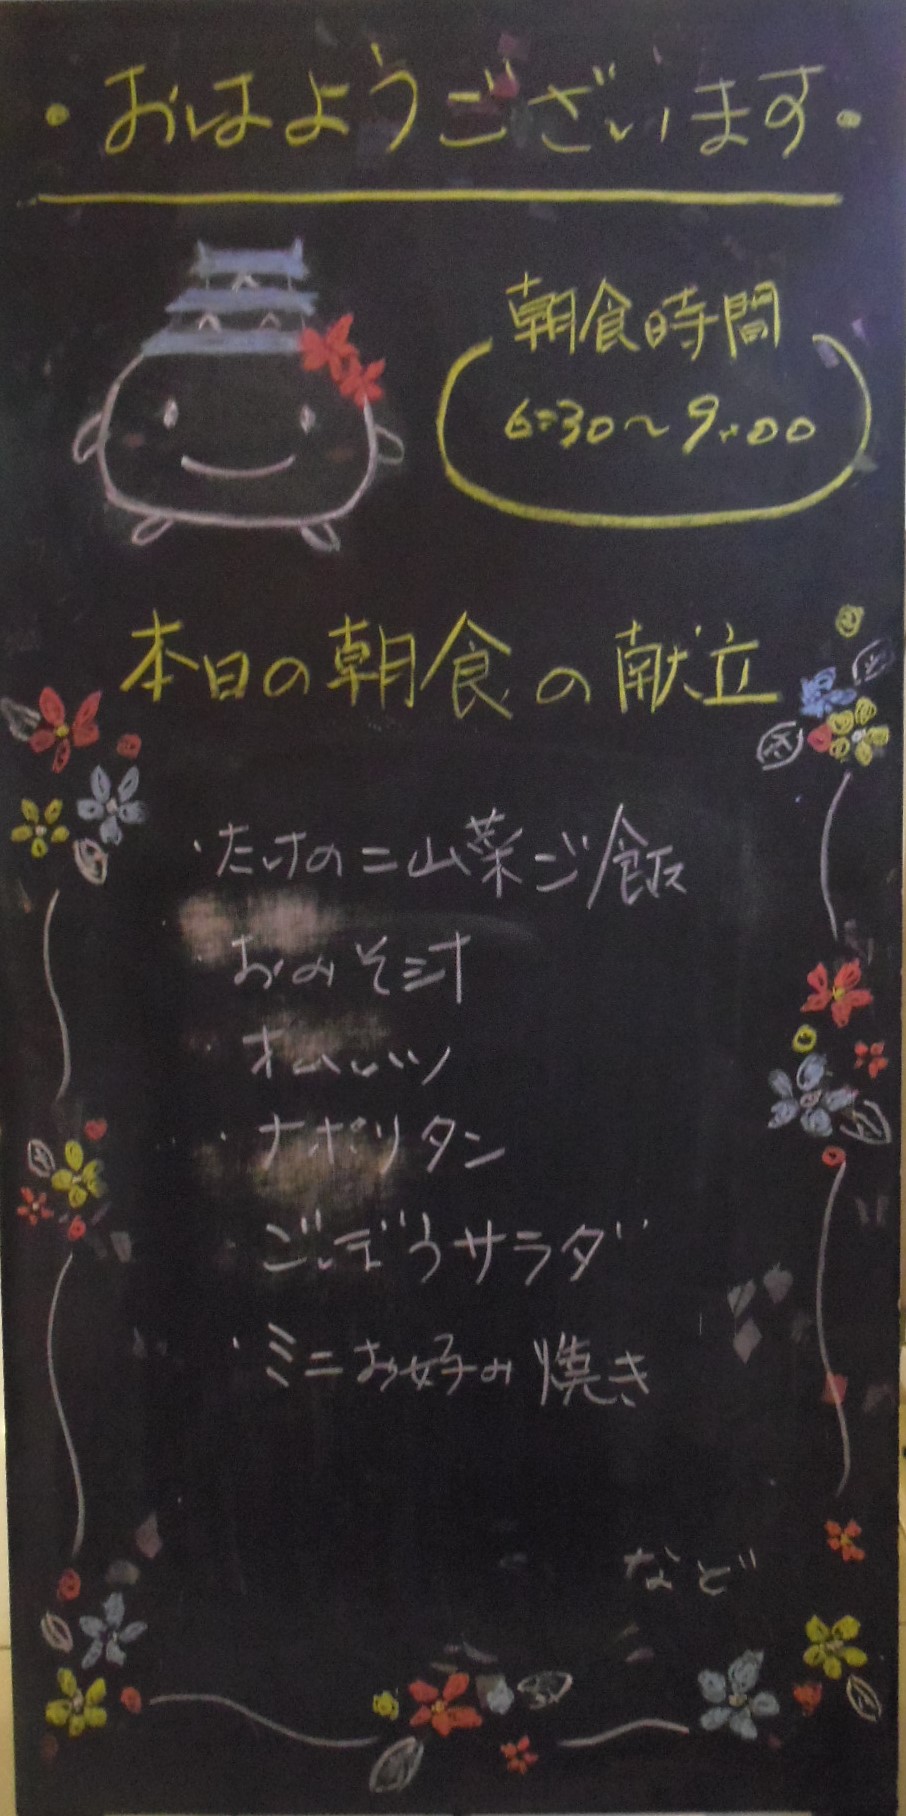 ・おはようございます・
朝食時間
6:30～9:00
本日の朝食の献立
・たけのこ山菜ご飯
・おみそ汁
・ナポリタン
ごぼうサラダ
・ミニお好み焼き
など